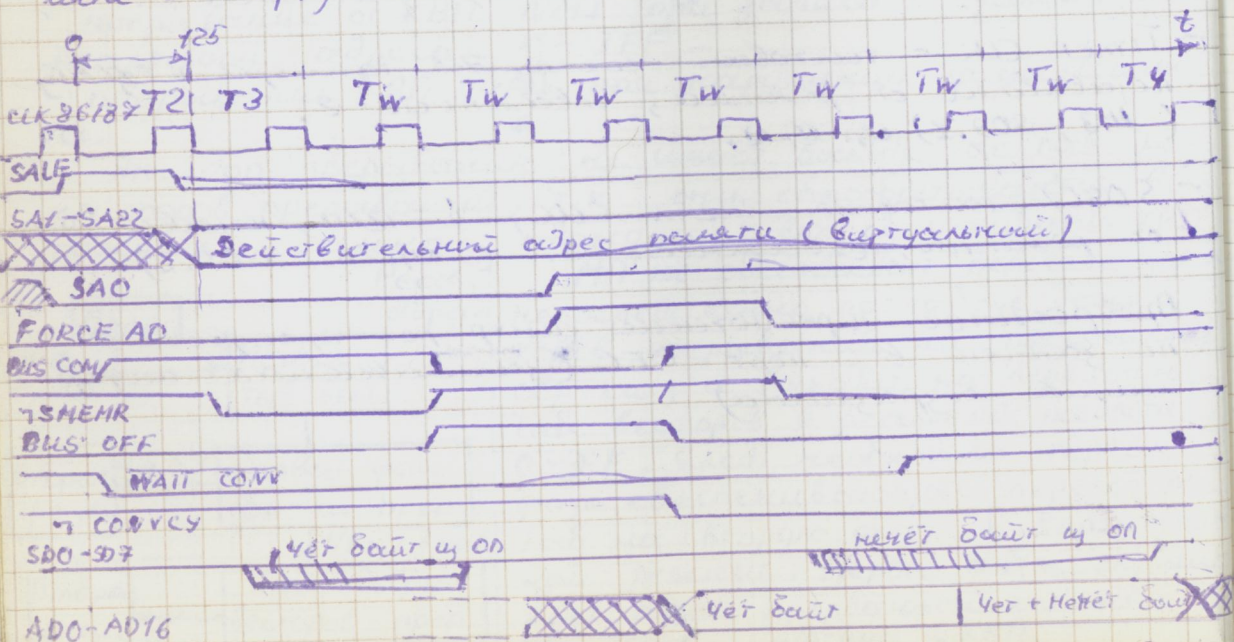 0 125 t
CLK 86/87 T2 T3 Tw Tw Tw Tw Tw Tw Tw T4
SALE
SA1-SA22
Действительный адрес памяти (виртуальный)
SA0
FORCE A0
BUS CONV
¬SMEMR
BUS OFF
WAIT CONV
¬ CONVCY
SD0-SD7 чёт байт из ОП нечёт байт из ОП
AD0-AD16 чёт байт чет + нечёт байт